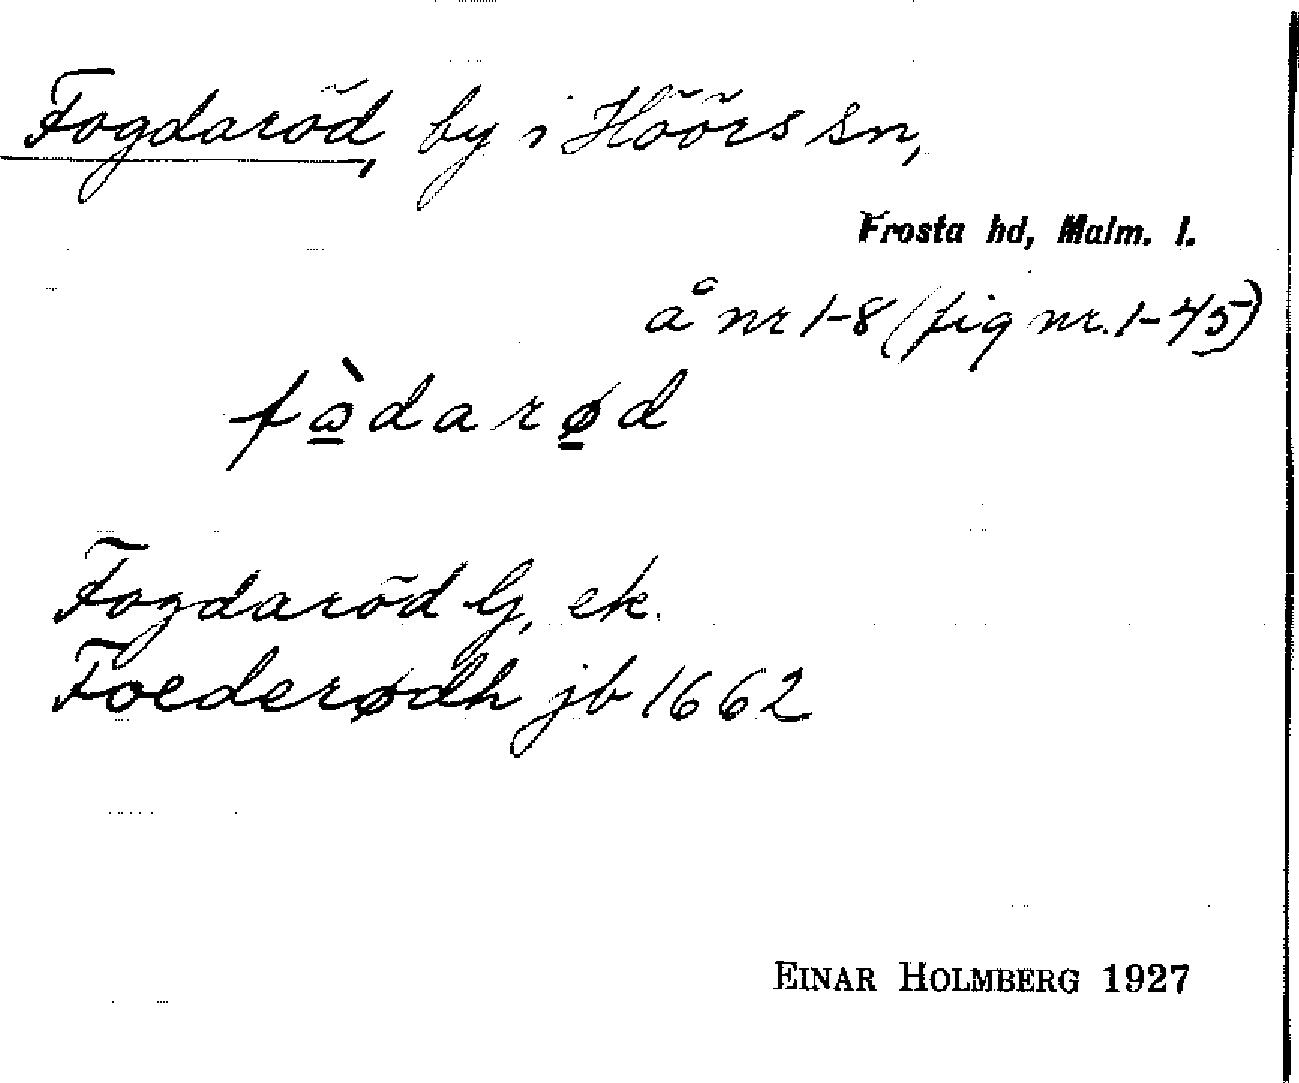 Fogdaröd, by i Höörs sn,
Frosta hd, Malm. l.
å nr 1-8 (fig nr. 1-45)
fàdarød
Fogdaröd G, ek.
Foederødh jb 1662
EINAR HOLMBERG 1927